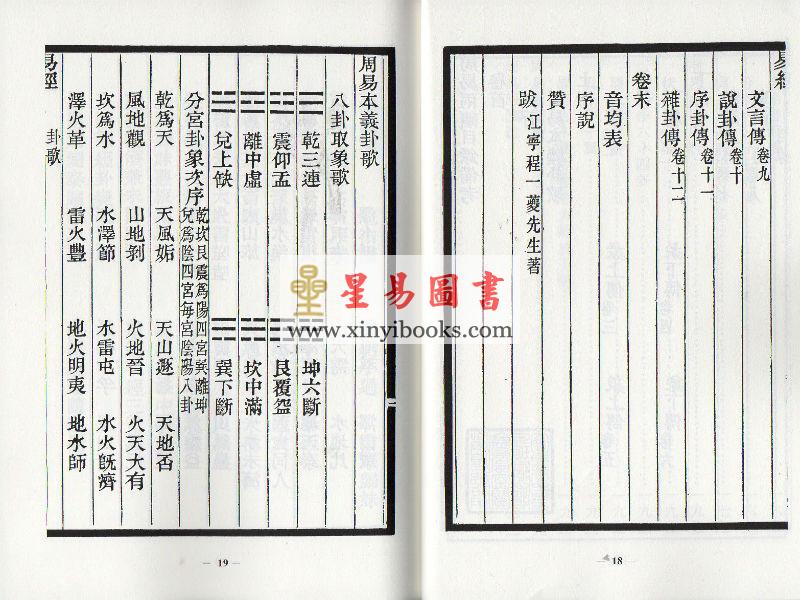 易經
文言傳 卷九
說卦傳 卷十
序卦傳 卷十一
雜卦傳 卷十二
卷末
音均表
序說
贊
跋 江寧程一夔先生著
18
周易本義卦歌
八卦取象歌
☰ 乾三連 ☷ 坤六斷
☳ 震仰盂 ☶ 艮覆盌
☲ 離中虛 ☵ 坎中滿
☱ 兌上缺 ☴ 巽下斷
分宮卦象次序 乾坎艮震爲陽四宮巽離坤
兌爲陰四宮每宮陰陽八卦
乾爲天 天風姤 天山遯 天地否
風地觀 山地剝 火地晉 火天大有
坎爲水 水澤節 水雷屯 水火旣濟
澤火革 雷火豐 地火明夷 地水師
易經 卦歌
19
星易圖書
www.xinyibooks.com